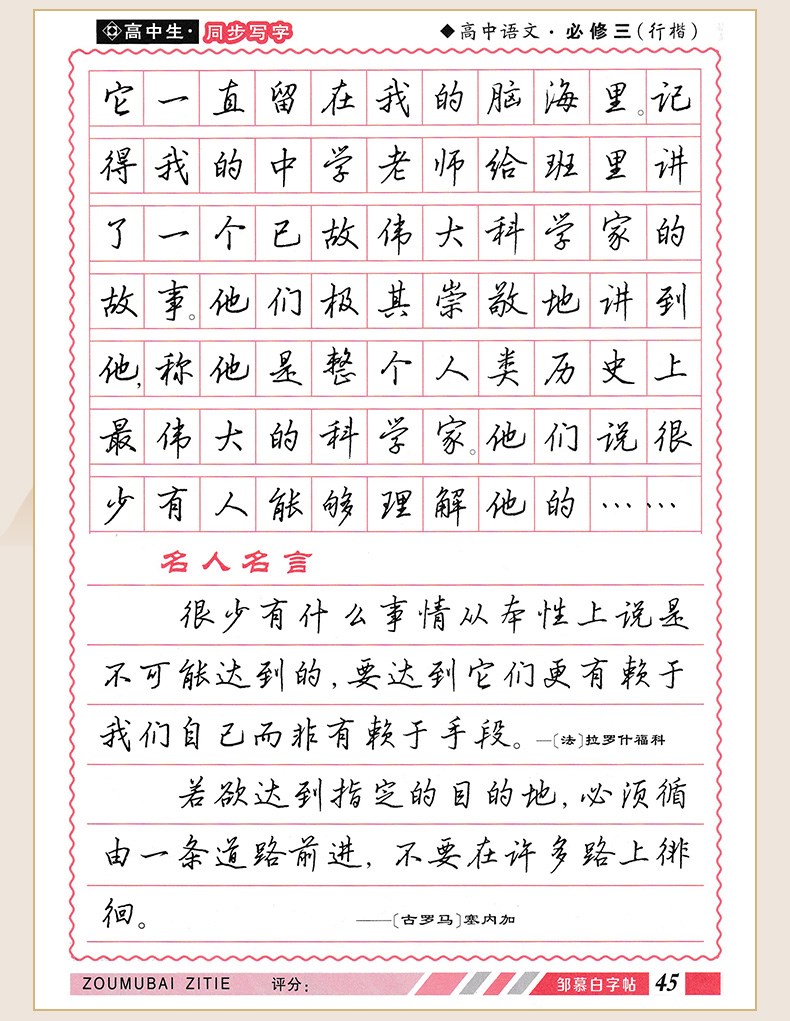 高中生·同步写字
◆高中语文·必修三(行楷)
它一直留在我的脑海里。记
得我的中学老师给班里讲
了一个已故伟大科学家的
故事。他们极其崇敬地讲到
他,称他是整个人类历史上
最伟大的科学家。他们说很
少有人能够理解他的……
名人名言
很少有什么事情从本性上说是
不可能达到的,要达到它们更有赖于
我们自己而非有赖于手段。—〔法〕拉罗什福科
若欲达到指定的目的地,必须循
由一条道路前进,不要在许多路上徘
徊。——〔古罗马〕塞内加
ZOUMUBAI ZITIE 评分:
邹慕白字帖 45